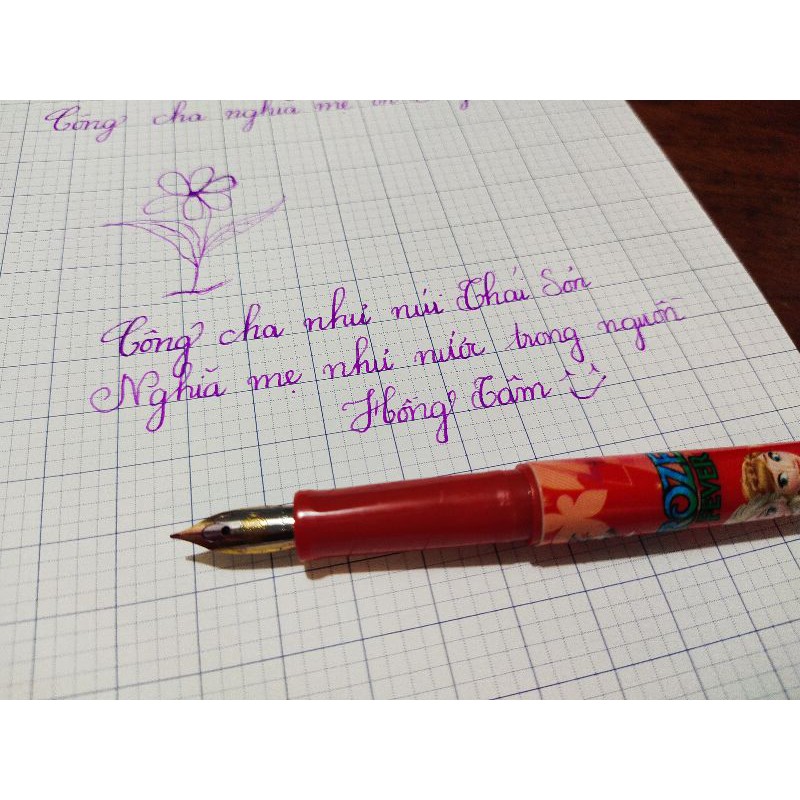 Công cha nghĩa mẹ ơn
Công cha như núi Thái Sơn
Nghĩa mẹ như nước trong nguồn
Hồng Tâm
OZE
EVER